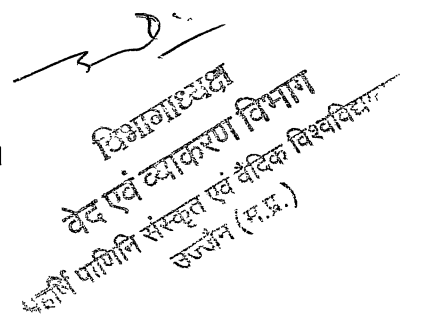 विभागाध्यक्ष
वेद एवं व्याकरण विभाग
महर्षि पाणिनि संस्कृत एवं वैदिक विश्वविद्या
उज्जैन (म.प्र.)